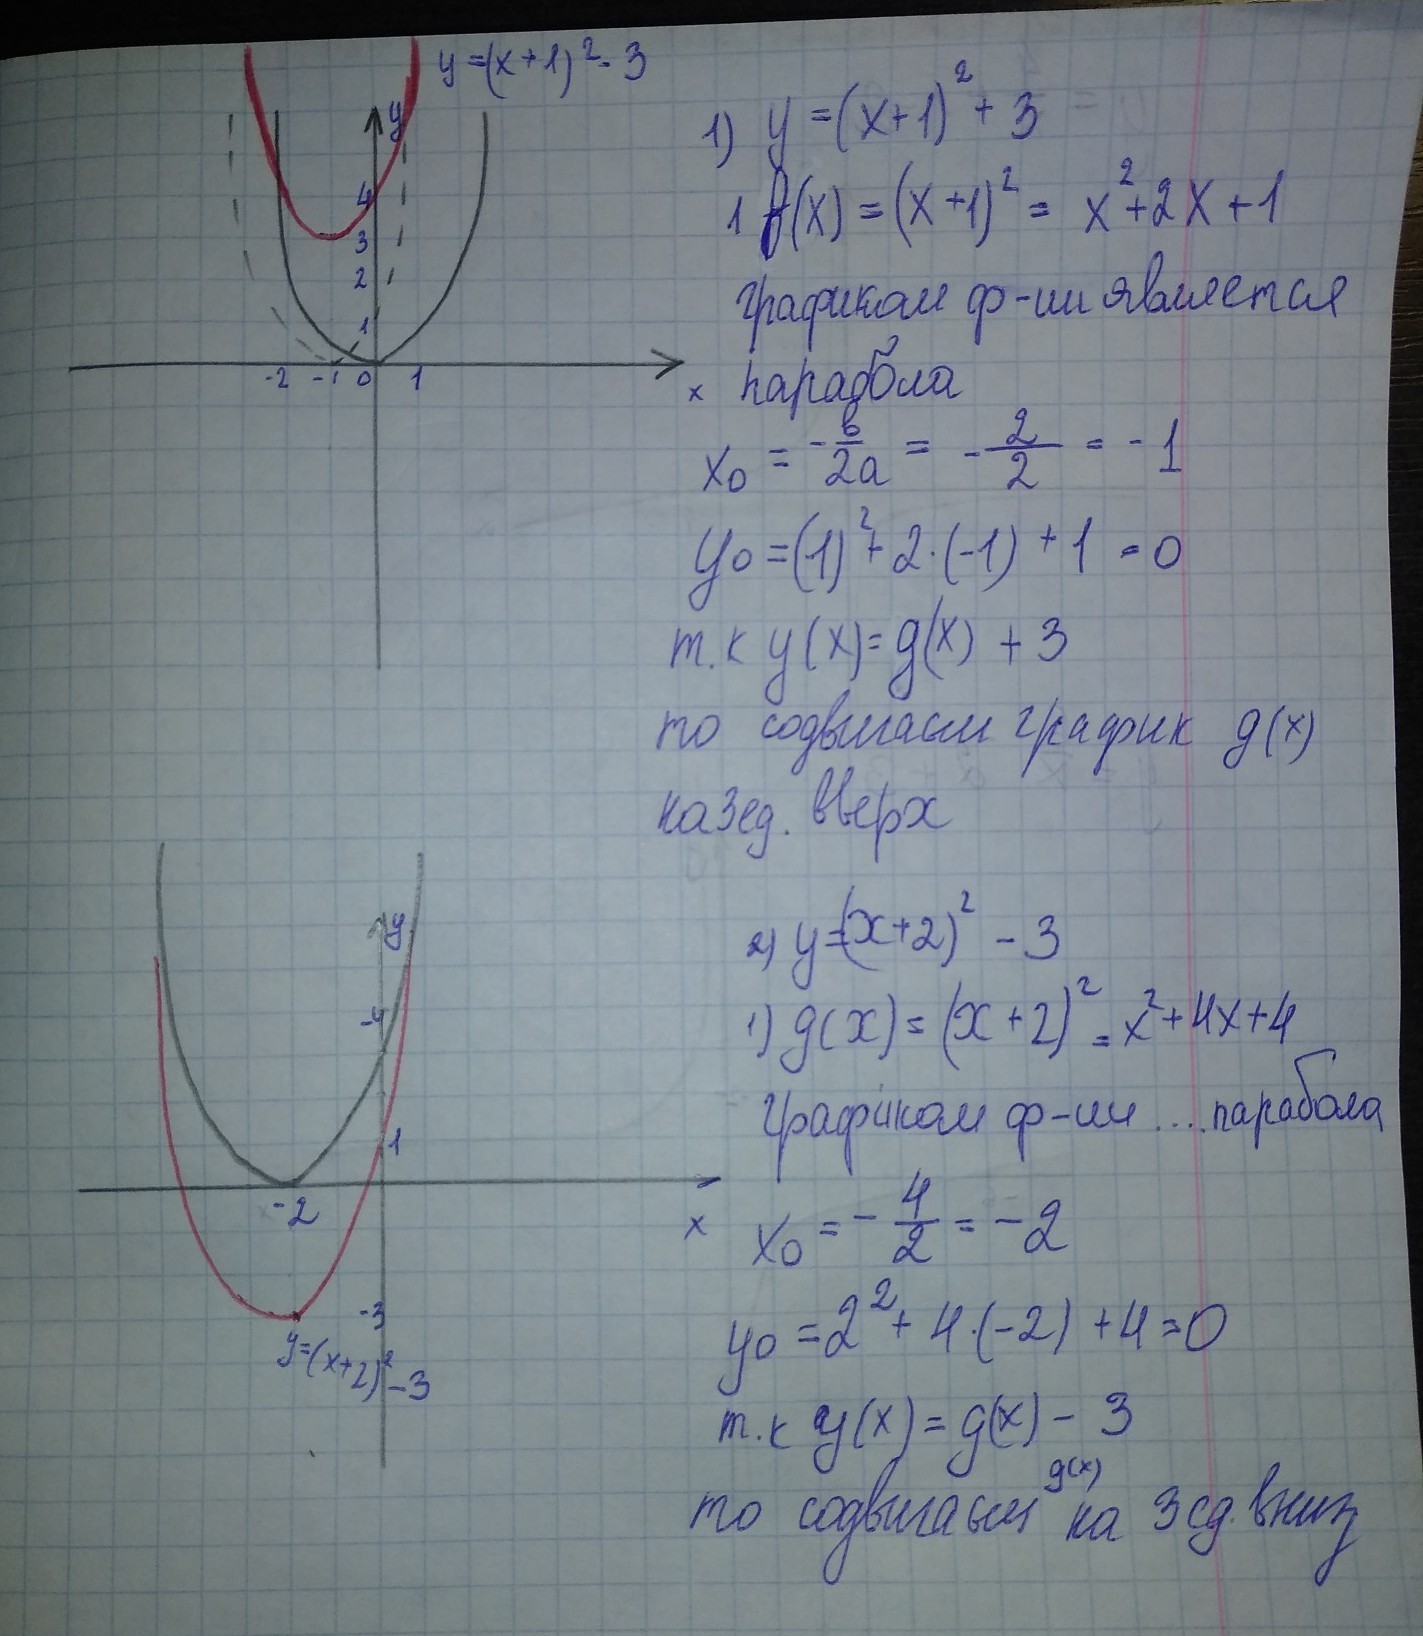 y=(x+1)²-3
y
4
3
2
1
-2 -1 0 1
x
1) y=(x+1)²+3
1 f(x)=(x+1)²= x²+2x+1
графиком ф-ии является
парабола
x₀ = -в/2a = -2/2 = -1
y₀=(1)²+2·(-1)+1=0
т.к y(x)=g(x)+3
то содвигаем график g(x)
на 3 ед. вверх
y
-4
1
-2
x
-3
y=(x+2)²-3
2) y=(x+2)²-3
1) g(x)=(x+2)²=x²+4x+4
графиком ф-ии ....парабола
x₀ = -4/2 = -2
y₀=2²+4·(-2)+4=0
т.к y(x)=g(x)-3
то содвигаем g(x) на 3 ед. вниз